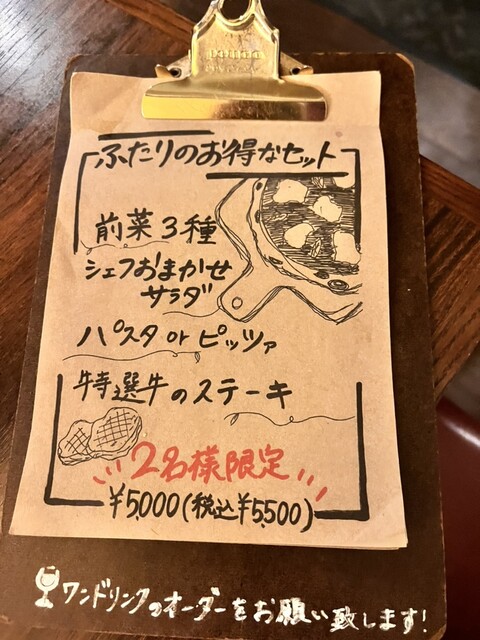 ふたりのお得なセット
前菜3種
シェフおまかせ
サラダ
パスタ or ピッツァ
特選牛のステーキ
2名様限定
¥5,000(税込¥5,500)
ワンドリンクのオーダーをお願い致します!